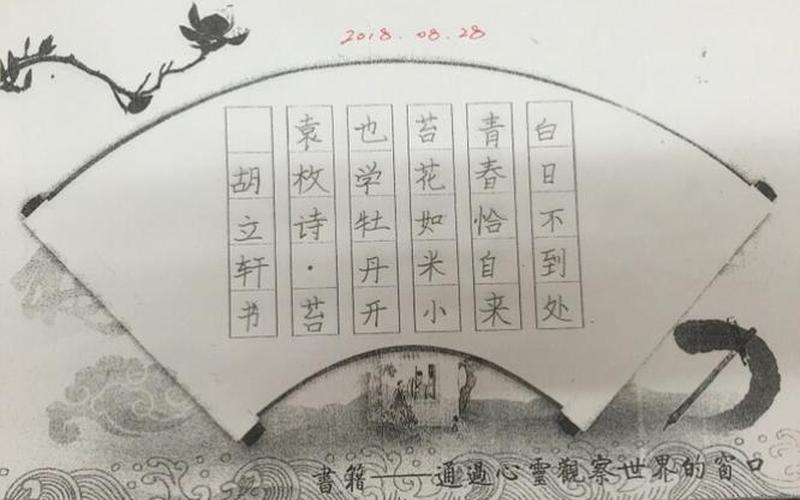 2018.08.28
白日不到处
青春恰自来
苔花如米小
也学牡丹开
袁枚诗·苔
胡立轩书
書籍——通過心靈觀察世界的窗口